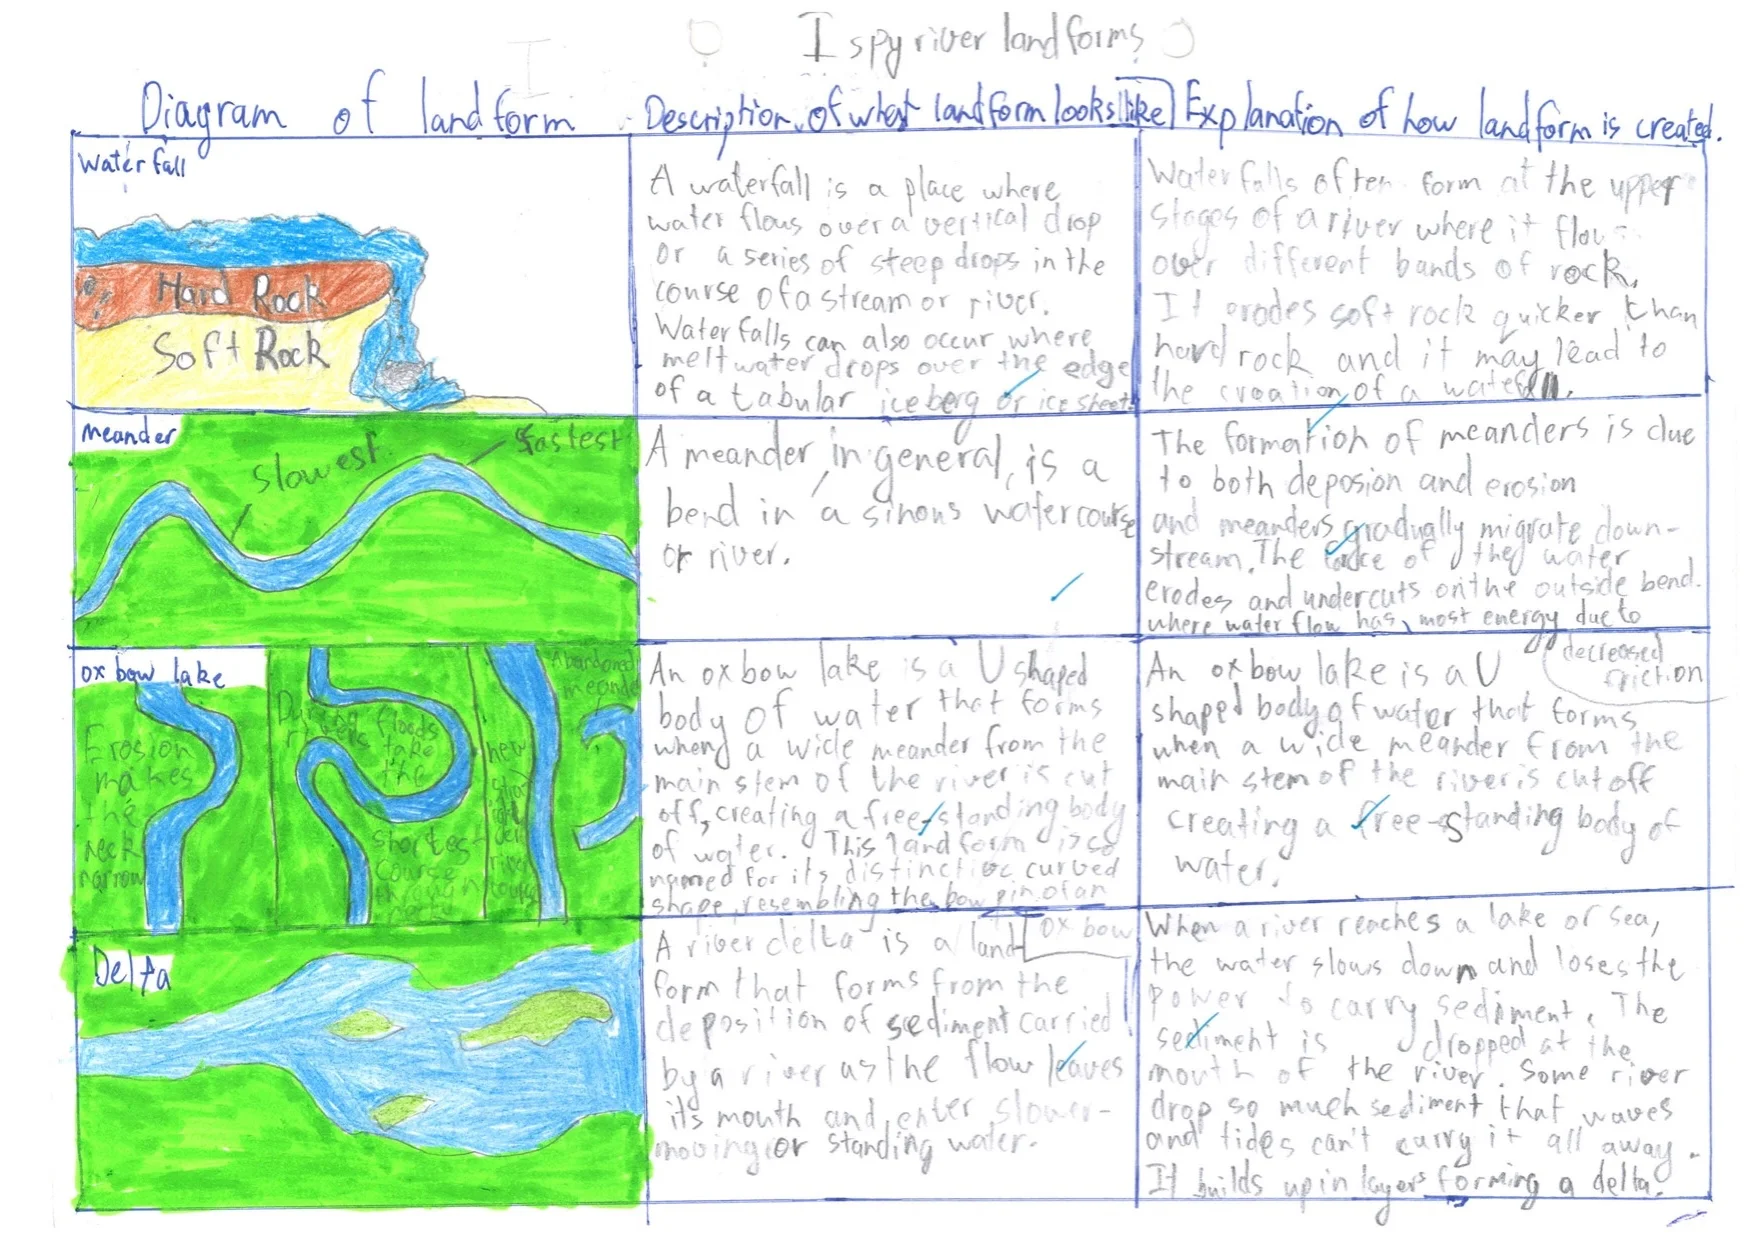 I spy river landforms
Diagram of landform
Description of what landform looks like
Explanation of how landform is created.
Waterfall
Hard Rock
Soft Rock
A waterfall is a place where
water flows over a vertical drop
or a series of steep drops in the
course of a stream or river.
Waterfalls can also occur where
meltwater drops over the edge
of a tabular iceberg or ice sheet.
Waterfalls often form at the upper
stages of a river where it flow
over different bands of rock.
It erodes soft rock quicker than
hard rock and it may lead to
the creation of a waterfall.
Meander
slowest
fastest
A meander, in general, is a
bend in a sinous watercourse
or river.
The formation of meanders is due
to both deposion and erosion
and meanders gradually migrate down-
stream. The force of the water
erodes and undercuts on the outside bend.
where water flow has most energy due to
decreased
friction
ox bow lake
Erosion
makes
the
neck
narrow
During floods
rivers take
the
shortest
course
through
neck
new
straight
river
course
Abandoned
meander
An ox bow lake is a U shaped
body of water that forms
when a wide meander from the
main stem of the river is cut
off, creating a free-standing body
of water. This landform is so
named for its distinctive curved
shape, resembling the bow pin of an
ox bow
An oxbow lake is a U
shaped body of water that forms
when a wide meander from the
main stem of the river is cut off
creating a free-standing body of
water.
Delta
A river delta is a land
form that forms from the
deposition of sediment carried
by a river as the flow leaves
its mouth and enter slower-
moving or standing water.
When a river reaches a lake or sea,
the water slows down and loses the
power to carry sediment. The
sediment is dropped at the
mouth of the river. Some river
drop so much sediment that waves
and tides can't carry it all away.
It builds up in layers forming a delta.